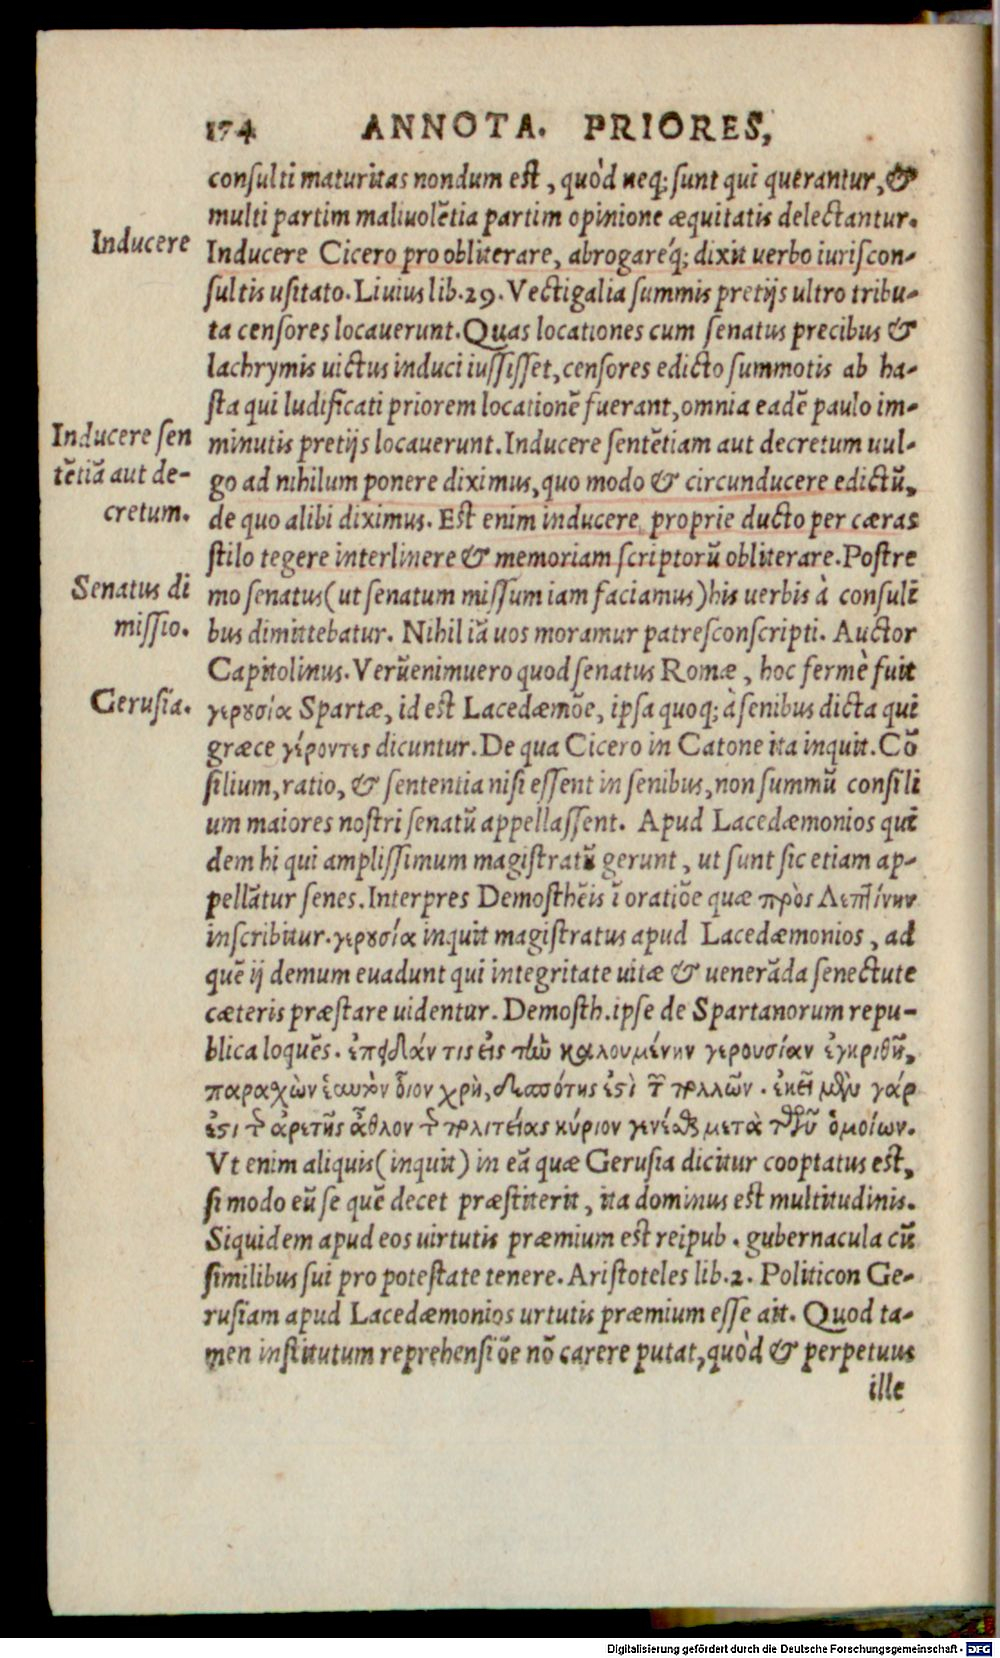 174 ANNOTA. PRIORES,
consulti maturitas nondum est, quòd neq; sunt qui querantur, &
multi partim maliuolētia partim opinione æquitatis delectantur.
Inducere
Inducere Cicero pro obliterare, abrogaréq; dixit uerbo iuriscon-
sultis usitato. Liuius lib. 29. Vectigalia summis pretijs ultro tribu-
ta censores locauerunt. Quas locationes cum senatus precibus &
lachrymis uictus induci iussisset, censores edicto summotis ab ha-
sta qui ludificati priorem locationē fuerant, omnia eadē paulo im-
Inducere sen
tētiā aut de-
cretum.
minutis pretijs locauerunt. Inducere sentētiam aut decretum uul-
go ad nihilum ponere diximus, quo modo & circunducere edictū,
de quo alibi diximus. Est enim inducere proprie ducto per cæras
stilo tegere interlinere & memoriam scriptorū obliterare. Postre
Senatus di
missio.
mo senatus (ut senatum missum iam faciamus) his uerbis à consuli
bus dimittebatur. Nihil iā uos moramur patresconscripti. Auctor
Capitolinus. Verūenimuero quod senatus Romæ, hoc fermè fuit
Gerusia.
γερουσία Spartæ, id est Lacedæmōe, ipsa quoq; à senibus dicta qui
græce γέροντες dicuntur. De qua Cicero in Catone ita inquit. Cō
silium, ratio, & sententia nisi essent in senibus, non summū consili
um maiores nostri senatū appellassent. Apud Lacedæmonios qui
dem hi qui amplissimum magistratū gerunt, ut sunt sic etiam ap-
pellātur senes. Interpres Demosthēis ī oratiōe quæ πρὸς Λεπτίνην
inscribitur. γερουσία inquit magistratus apud Lacedæmonios, ad
quē ij demum euadunt qui integritate uitæ & uenerāda senectute
cæteris præstare uidentur. Demosth. ipse de Spartanorum repu-
blica loquēs. ἐπειδάν τις εἰς τὴν καλουμένην γερουσίαν ἐγκριθῇ,
παρασχὼν ἑαυτὸν οἷον χρὴ, δεσπότης ἐστὶ τῶν πολλῶν. ἐκεῖ μὲν γάρ
ἐστι τῆς ἀρετῆς ἆθλον τῆς πολιτείας κύριον γενέσθαι μετὰ τῶν ὁμοίων.
Vt enim aliquis (inquit) in eā quæ Gerusia dicitur cooptatus est,
si modo eū se quē decet præstiterit, ita dominus est multitudinis.
Siquidem apud eos uirtutis præmium est reipub. gubernacula cū
similibus sui pro potestate tenere. Aristoteles lib. 2. Politicon Ge-
rusiam apud Lacedæmonios urtutis præmium esse ait. Quod ta-
men institutum reprehensiōe nō carere putat, quòd & perpetuus
ille
Digitalisierung gefördert durch die Deutsche Forschungsgemeinschaft - DFG